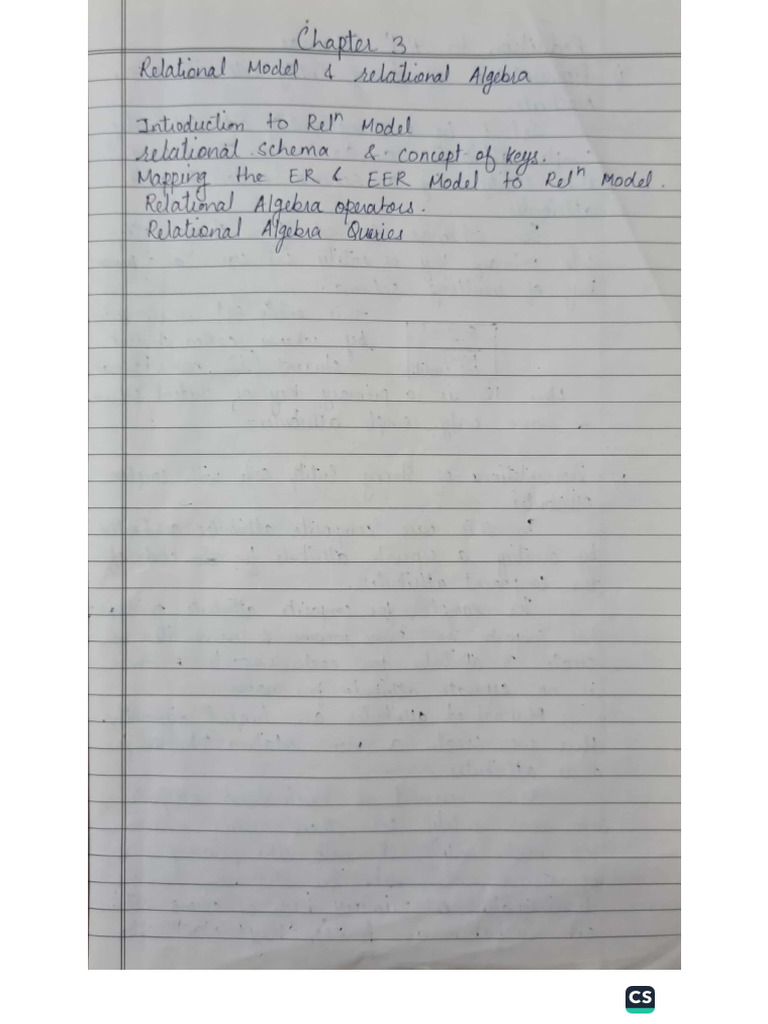 Chapter 3
Relational Model & relational Algebra
Introduction to Relⁿ Model
relational schema & concept of keys.
Mapping the ER & EER Model to Relⁿ Model.
Relational Algebra operators.
Relational Algebra Queries
CS